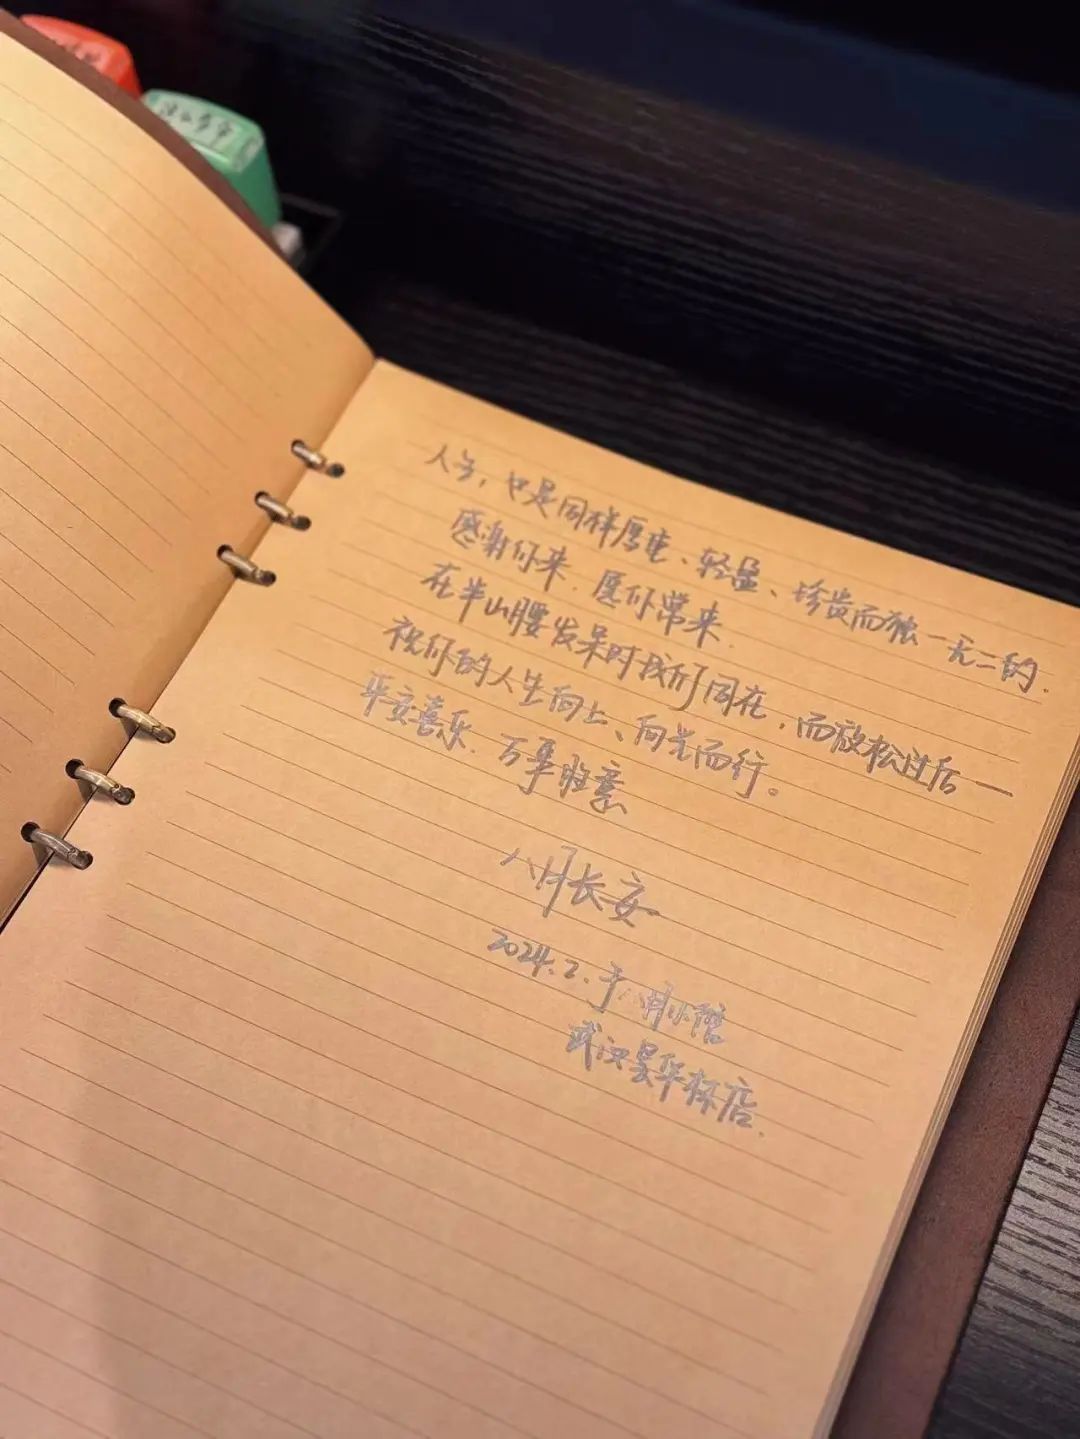 人生，也是同样厚重、轻盈、珍贵而独一无二的.
感谢你来.愿你常来.
在半山腰发呆时我们同在，而放松过后一
祝你的人生向上、向光而行。
平安喜乐.万事胜意
八月长安
2024.2.于八月小馆
武汉昙华林店.